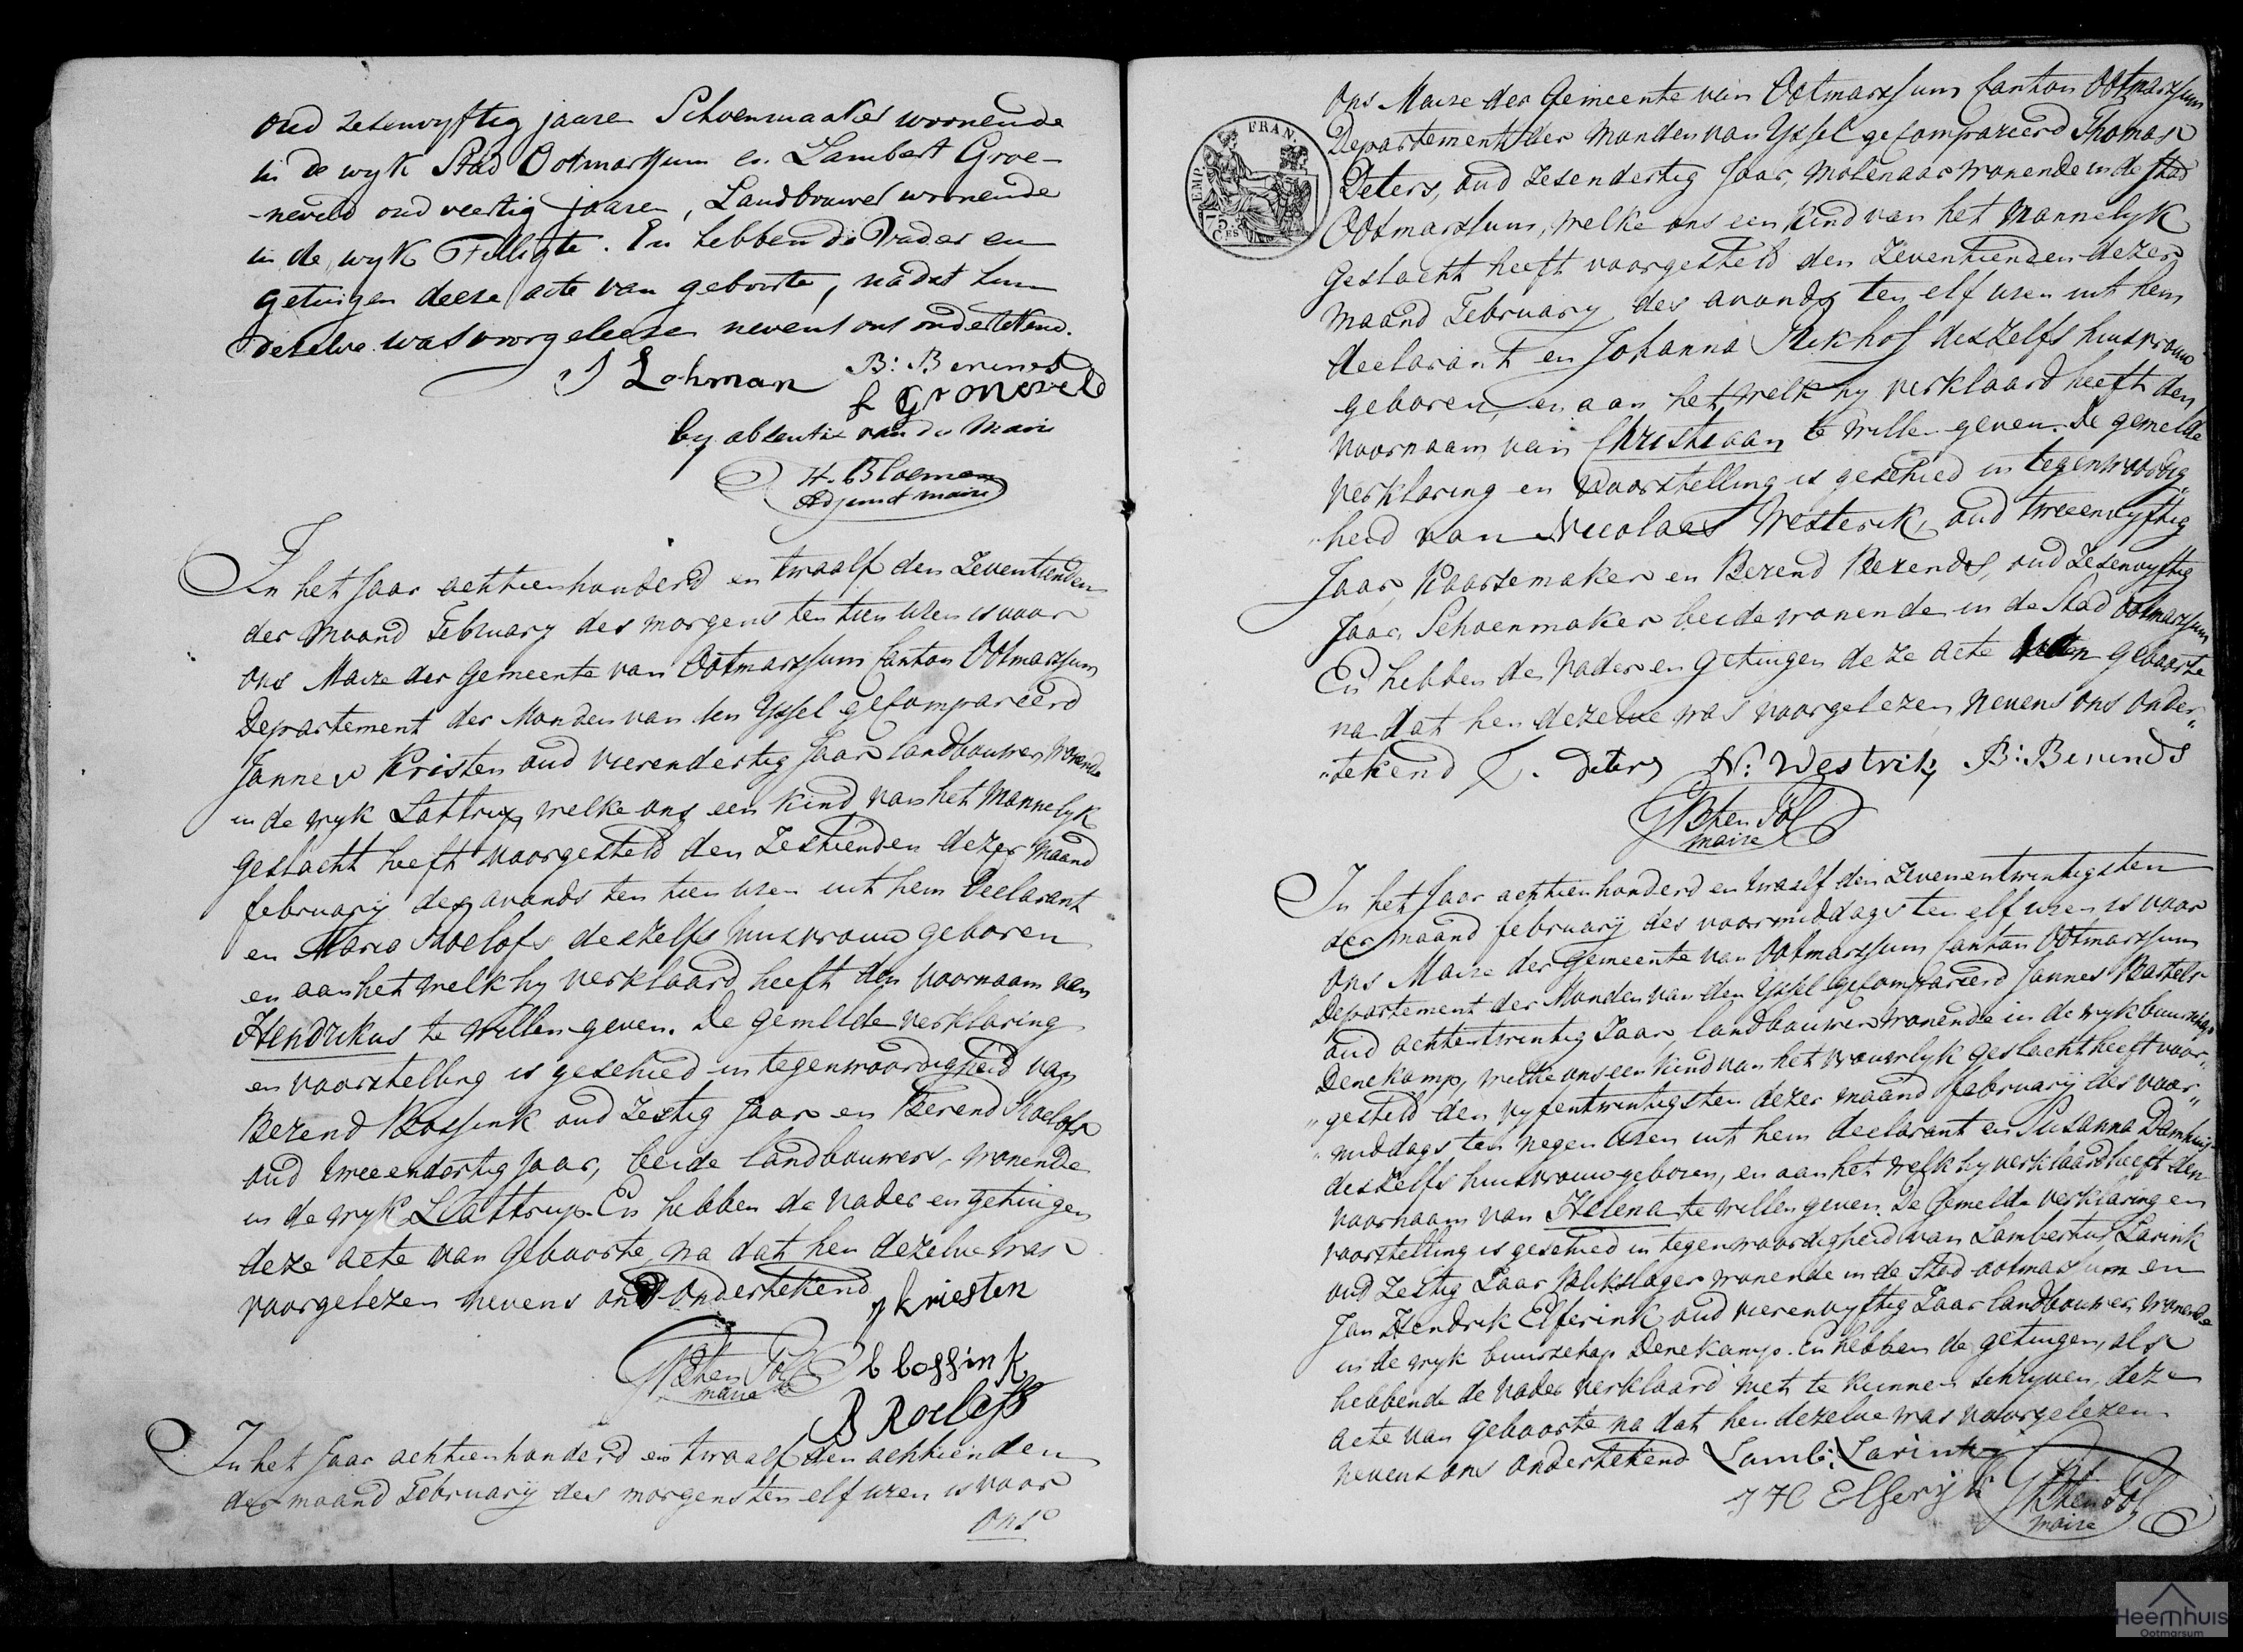 oud zesenvyftig jaaren Schoenmaaker woonende
in de wyk Stad Ootmarssum en Lambert Groe-
-neveld oud veertig jaaren, Landbouwer woonende
in de wyk Tilligte. En hebben de Vader en
getuigen deeze acte van geboorte, na dat hun
dezelve was voorgeleezen nevens ons ondertekend.
J Lohman B: Berends
L Groneveld
by absentie van de Maire
H. Bloemen
Adjunct maire
In het Jaar achttienhonderd en twaalf den Zeventienden
der maand February des morgens ten tien uren is voor
ons Maire der Gemeente van Ootmarssum Canton Ootmarssum
Departement der Monden van den Yssel gecompareerd
Jannes Kristen oud vierendertig Jaar landbouwer wonende
in de wyk Lattrop, welke ons een kind van het Mannelyk
geslacht heeft voorgesteld den Zestienden dezer maand
february des avonds ten tien uren uit hem declarant
en Maria Roelofs deszelfs huisvrouw geboren
en aan het welk hy verklaard heeft den voornaam van
Hendrikus te willen geven. De gemelde verklaring
en voorstelling is geschied in tegenwoordigheid van
Berend Bossink oud Zestig Jaar en Berend Roelofs
oud tweeendertig Jaar, beide landbouwers, wonende
in de wyk Lattrup. En hebben de Vader en getuigen
deze acte van Geboorte, na dat hen dezelve was
voorgelezen nevens ons ondertekend
j kriesten
maire b bossink
B Roelefs
In het Jaar achttienhonderd en twaalf den achttienden
der maand February des morgens ten elf uren is voor
ons
EMP. FRAN.
CES
ons Maire der Gemeente van Ootmarssum Canton Ootmarssum
Departement der Monden van Yssel gecompareerd Thomas
Deters, oud zesendertig Jaar, molenaar wonende in de stad
Ootmarssum, welke ons een kind van het Mannelyk
Geslacht heeft voorgesteld den Zeventienden dezer
maand February des avonds ten elf uren uit hem
declarant en Johanna deszelfs huisvrouw
geboren, en aan het welk hy verklaard heeft den
voornaam van Christiaan te willen geven. De gemelde
verklaring en voorstelling is geschied in tegenwoordig„
„heid van Nicolaas Westerik, oud tweeenvyftig
Jaar, Kaarsemaker en Berend Berends, oud zesenvyftig
Jaar, Schoenmaker beide wonende in de Stad Ootmarssum
En hebben de Vader en Getuigen deze acte van geboorte
na dat hen dezelve was voorgelezen nevens ons onder„
„tekend T. Deters N: Westrik B: Berends
maire
In het Jaar achttienhonderd en twaalf den Zevenentwintigsten
der maand february des voormiddags ten elf uren is voor
ons Maire der Gemeente van Ootmarssum Canton Ootmarssum
Departement der Monden van den Yssel gecompareerd Jannes Bartels
oud achtentwintig Jaar, landbouwer wonende in de wyk buurschap
Denekamp, welke ons een kind van het vrouwlyk geslacht heeft voor„
„gesteld den vyfentwintigsten dezer maand february des voor„
„middags ten negen uren uit hem declarant en Susanna Damhuis
deszelfs huisvrouw geboren, en aan het welk hy verklaard heeft den
voornaam van Helena te willen geven. De Gemelde verklaring en
voorstelling is geschied in tegenwoordigheid van Lambertus Larink
oud Zestig Jaar Blikslager wonende in de Stad ootmarsum en
Jan Hendrik Elferink oud vierenvyftig Jaar landbouwer, wonende
in de wyk buurschap Denekamp. En hebben de getuigen, als
hebbende de Vader verklaard niet te kunnen schryven, deze
acte van Geboorte na dat hen dezelve was voorgelezen
nevens ons ondertekend Lamb: Larink
J H Elferijk
maire
Heemhuis
Ootmarsum